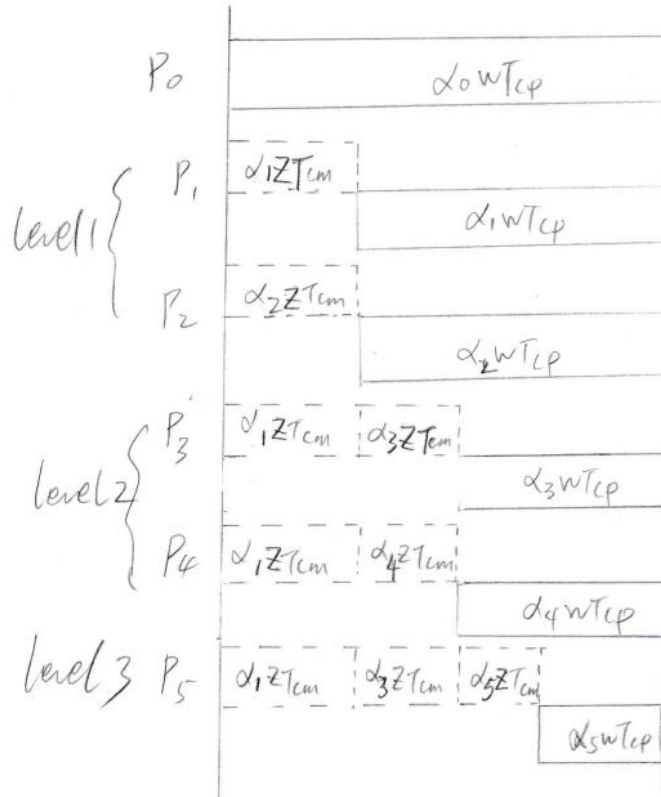 P₀ α₀wTcp
P₁ α₁zTcm
level1
α₁wTcp
P₂ α₂zTcm
α₂wTcp
P₃ α₁zTcm α₃zTcm
level2
α₃wTcp
P₄ α₁zTcm α₄zTcm
α₄wTcp
level3 P₅ α₁zTcm α₃zTcm α₅zTcm
α₅wTcp